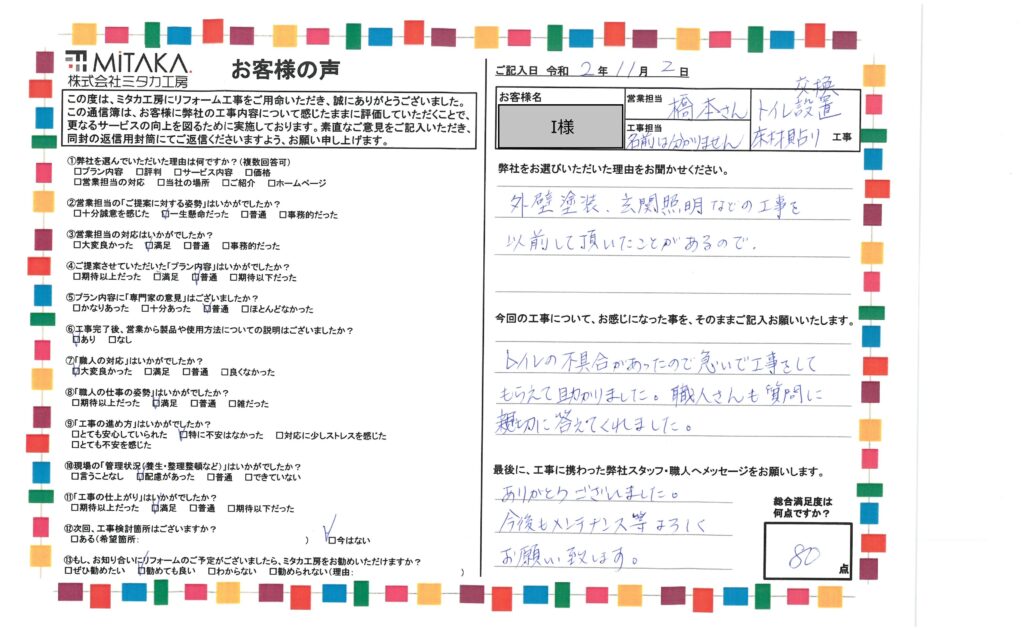 MiTAKA.
株式会社ミタカ工房
お客様の声
この度は、ミタカ工房にリフォーム工事をご用命いただき、誠にありがとうございました。
この通信簿は、お客様に弊社の工事内容について感じたままに評価していただくことで、
更なるサービスの向上を図るために実施しております。素直なご意見をご記入いただき、
同封の返信用封筒にてご返信くださいますよう、お願い申し上げます。
①弊社を選んでいただいた理由は何ですか？(複数回答可)
□プラン内容 □評判 □サービス内容 □価格
□営業担当の対応 □当社の場所 □ご紹介 □ホームページ
②営業担当の「ご提案に対する姿勢」はいかがでしたか？
□十分誠意を感じた ☑一生懸命だった □普通 □事務的だった
③営業担当の対応はいかがでしたか？
□大変良かった ☑満足 □普通 □事務的だった
④ご提案させていただいた「プラン内容」はいかがでしたか？
□期待以上だった □満足 ☑普通 □期待以下だった
⑤プラン内容に「専門家の意見」はございましたか？
□かなりあった □十分あった ☑普通 □ほとんどなかった
⑥工事完了後、営業から製品や使用方法についての説明はございましたか？
☑あり □なし
⑦「職人の対応」はいかがでしたか？
☑大変良かった □満足 □普通 □良くなかった
⑧「職人の仕事の姿勢」はいかがでしたか？
□期待以上だった ☑満足 □普通 □雑だった
⑨「工事の進め方」はいかがでしたか？
□とても安心していられた ☑特に不安はなかった □対応に少しストレスを感じた
□とても不安を感じた
⑩現場の「管理状況(養生・整理整頓など)」はいかがでしたか？
□言うことなし ☑配慮があった □普通 □できていない
⑪「工事の仕上がり」はいかがでしたか？
□期待以上だった ☑満足 □普通 □期待以下だった
⑫次回、工事検討箇所はございますか？
□ある(希望箇所: ) ☑今はない
⑬もし、お知り合いにリフォームのご予定がございましたら、ミタカ工房をお勧めいただけますか？
□ぜひ勧めたい ☑勧めても良い □わからない □勧められない(理由: )
ご記入日 令和 2年 11月 2日
お客様名
I様
営業担当 橋本さん
工事担当
名前は分かりません
交換
トイレ設置
床材貼り 工事
弊社をお選びいただいた理由をお聞かせください。
外壁塗装、玄関照明などの工事を
以前して頂いたことがあるので、
今回の工事について、お感じになった事を、そのままご記入お願いいたします。
トイレの不具合があったので急いで工事をして
もらえて助かりました。職人さんも質問に
親切に答えてくれました。
最後に、工事に携わった弊社スタッフ・職人へメッセージをお願いします。
ありがとうございました。
今後もメンテナンス等よろしく
お願い致します。
総合満足度は
何点ですか？
80
点